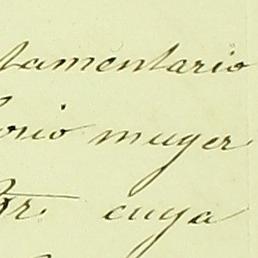 tamentario
onio muger
Fr. cuya